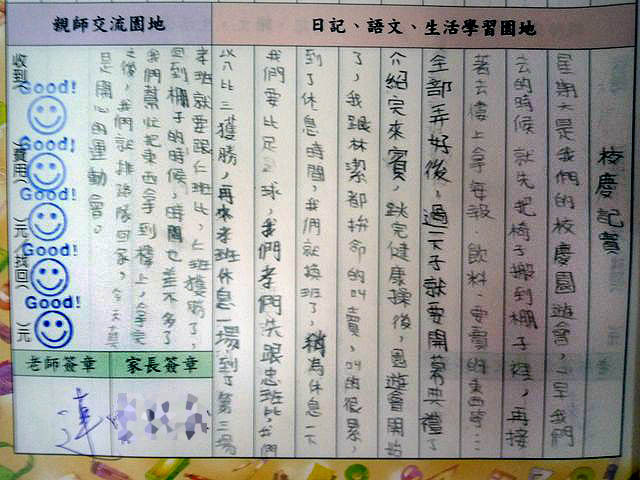 日記、語文、生活學習園地
親師交流園地
校慶記實
星期六是我們的校慶園遊會，一早我們
去的時候就先把椅子搬到棚子裡，再接
著去樓上拿海報、飲料、要賣的東西等…
全部弄好後，過一下子就要開幕典禮了
介紹完來賓，跳完健康操後，園遊會開始
了，我跟林潔都拚命的叫賣，叫的很累，
到了休息時間，我們就換班了，稍為休息一下
我們要比足球，我們孝們先跟忠班比，我們
以八比三獲勝，再來孝班休息一場，到了第三場
孝班就要跟仁班比，仁班獲勝了，
回到棚子的時候，時間也差不多了
我們幫忙把東西拿到樓上，拿完
之後，我們就排路隊回家，今天真
是開心的運動會。
收到（
）費用（
）元（找回）
）元
Good!
Good!
Good!
Good!
Good!
家長簽章
老師簽章